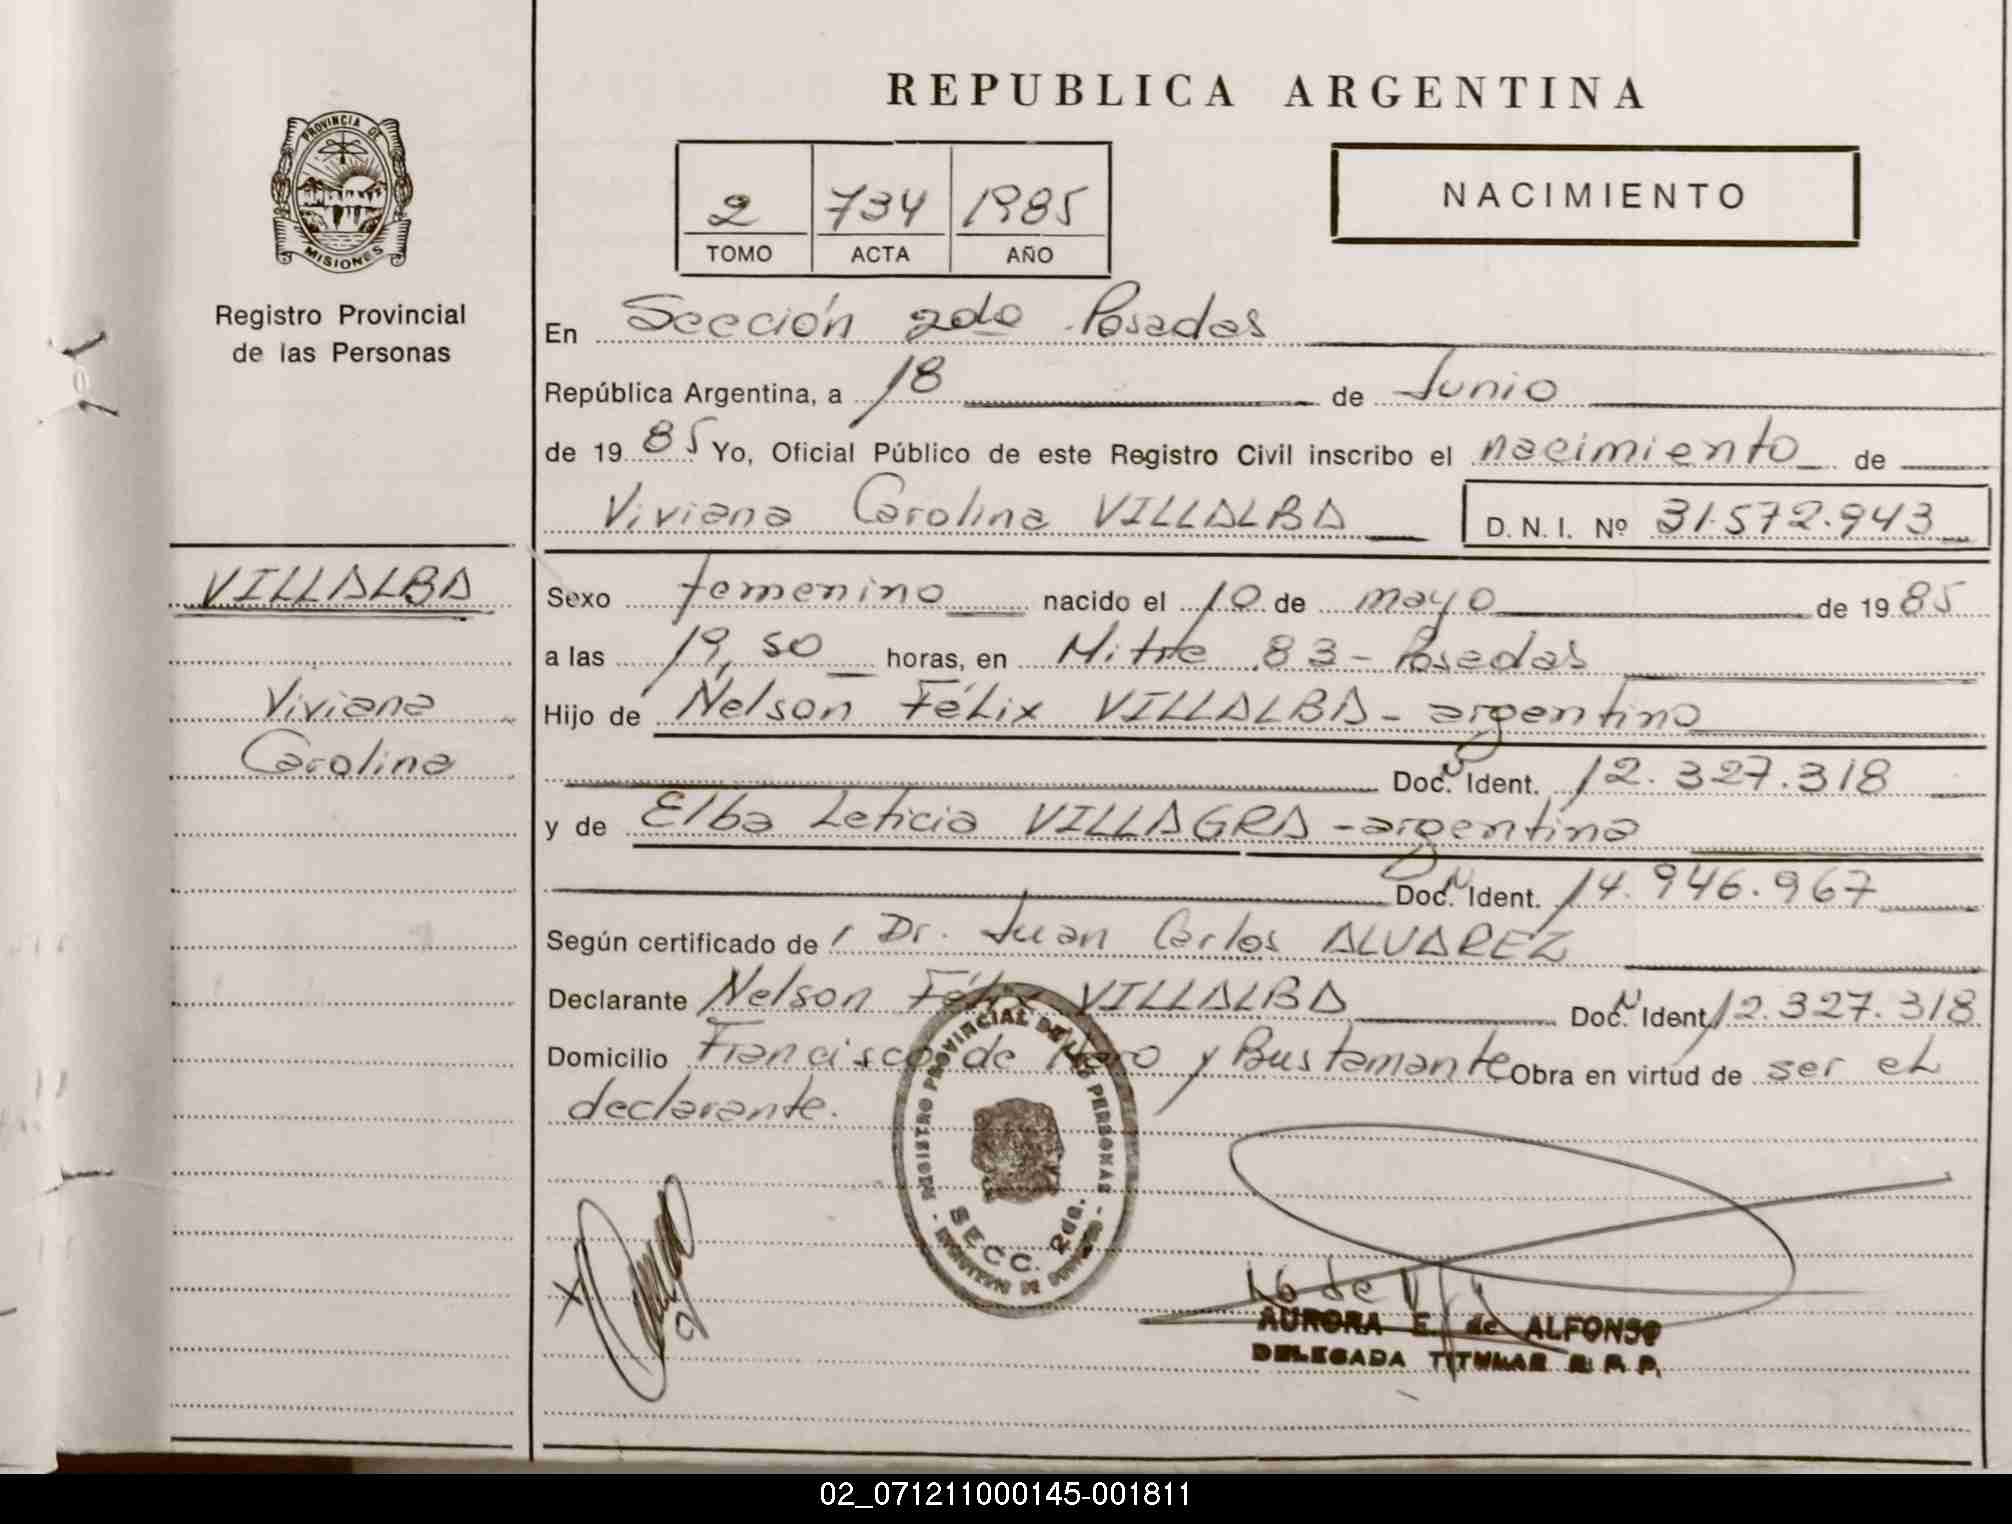 PROVINCIA DE
MISIONES
Registro Provincial
de las Personas
VILLALBA
Viviana
Carolina
REPUBLICA ARGENTINA
2 734 1985
TOMO ACTA AÑO
NACIMIENTO
En Sección 2do Posadas
República Argentina, a 18 de Junio
de 1985 Yo, Oficial Público de este Registro Civil inscribo el nacimiento de
Viviana Carolina VILLALBA D. N. I. Nº 31.572.943
Sexo femenino nacido el 10 de mayo de 1985
a las 19,50 horas, en Mitre 83 - Posadas
Hijo de Nelson Félix VILLALBA - argentino
Doc. N Ident. 12.327.318
y de Elba Leticia VILLAGRA - argentina
Doc. N Ident. 14.946.967
Según certificado de Dr. Juan Carlos ALVAREZ
Declarante Nelson Félix VILLALBA Doc. N Ident. 12.327.318
Domicilio Francisco de Haro y Bustamante Obra en virtud de ser el
declarante.
REGISTRO PROVINCIAL DE LAS PERSONAS
SECC. 2da.
AURORA E. de ALFONSO
DELEGADA TITULAR R. P. P.
02_071211000145-001811